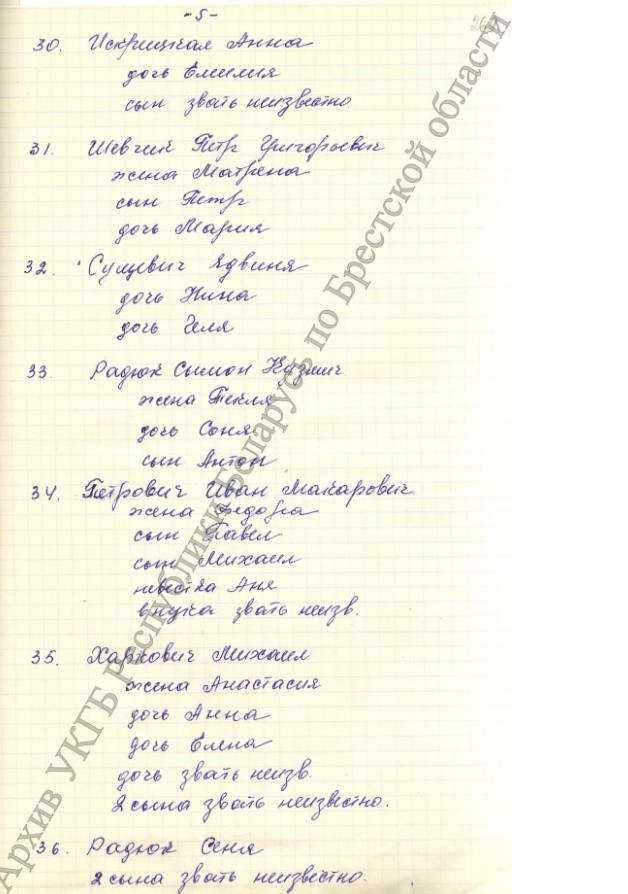 -5-
30. Искрицкая Анна
дочь Емилия
сын звать неизвестно
31. Шевчик Петр Григорьевич
жена Матрена
сын Петр
дочь Мария
32. Сущевич Ядвиня
дочь Нина
дочь Геля
33. Радюк Сымон Кузмич
жена Текля
дочь Соня
сын Антон
34. Петрович Иван Макарович
жена Федора
сын Павел
сын Михаил
невестка Аня
внучка звать неизв.
35. Харкович Михаил
жена Анастасия
дочь Анна
дочь Елена
дочь звать неизв.
2 сына звать неизвестно.
36. Радюк Сеня
2 сына звать неизвестно.
Архив УКГБ Республики Беларусь по Брестской области